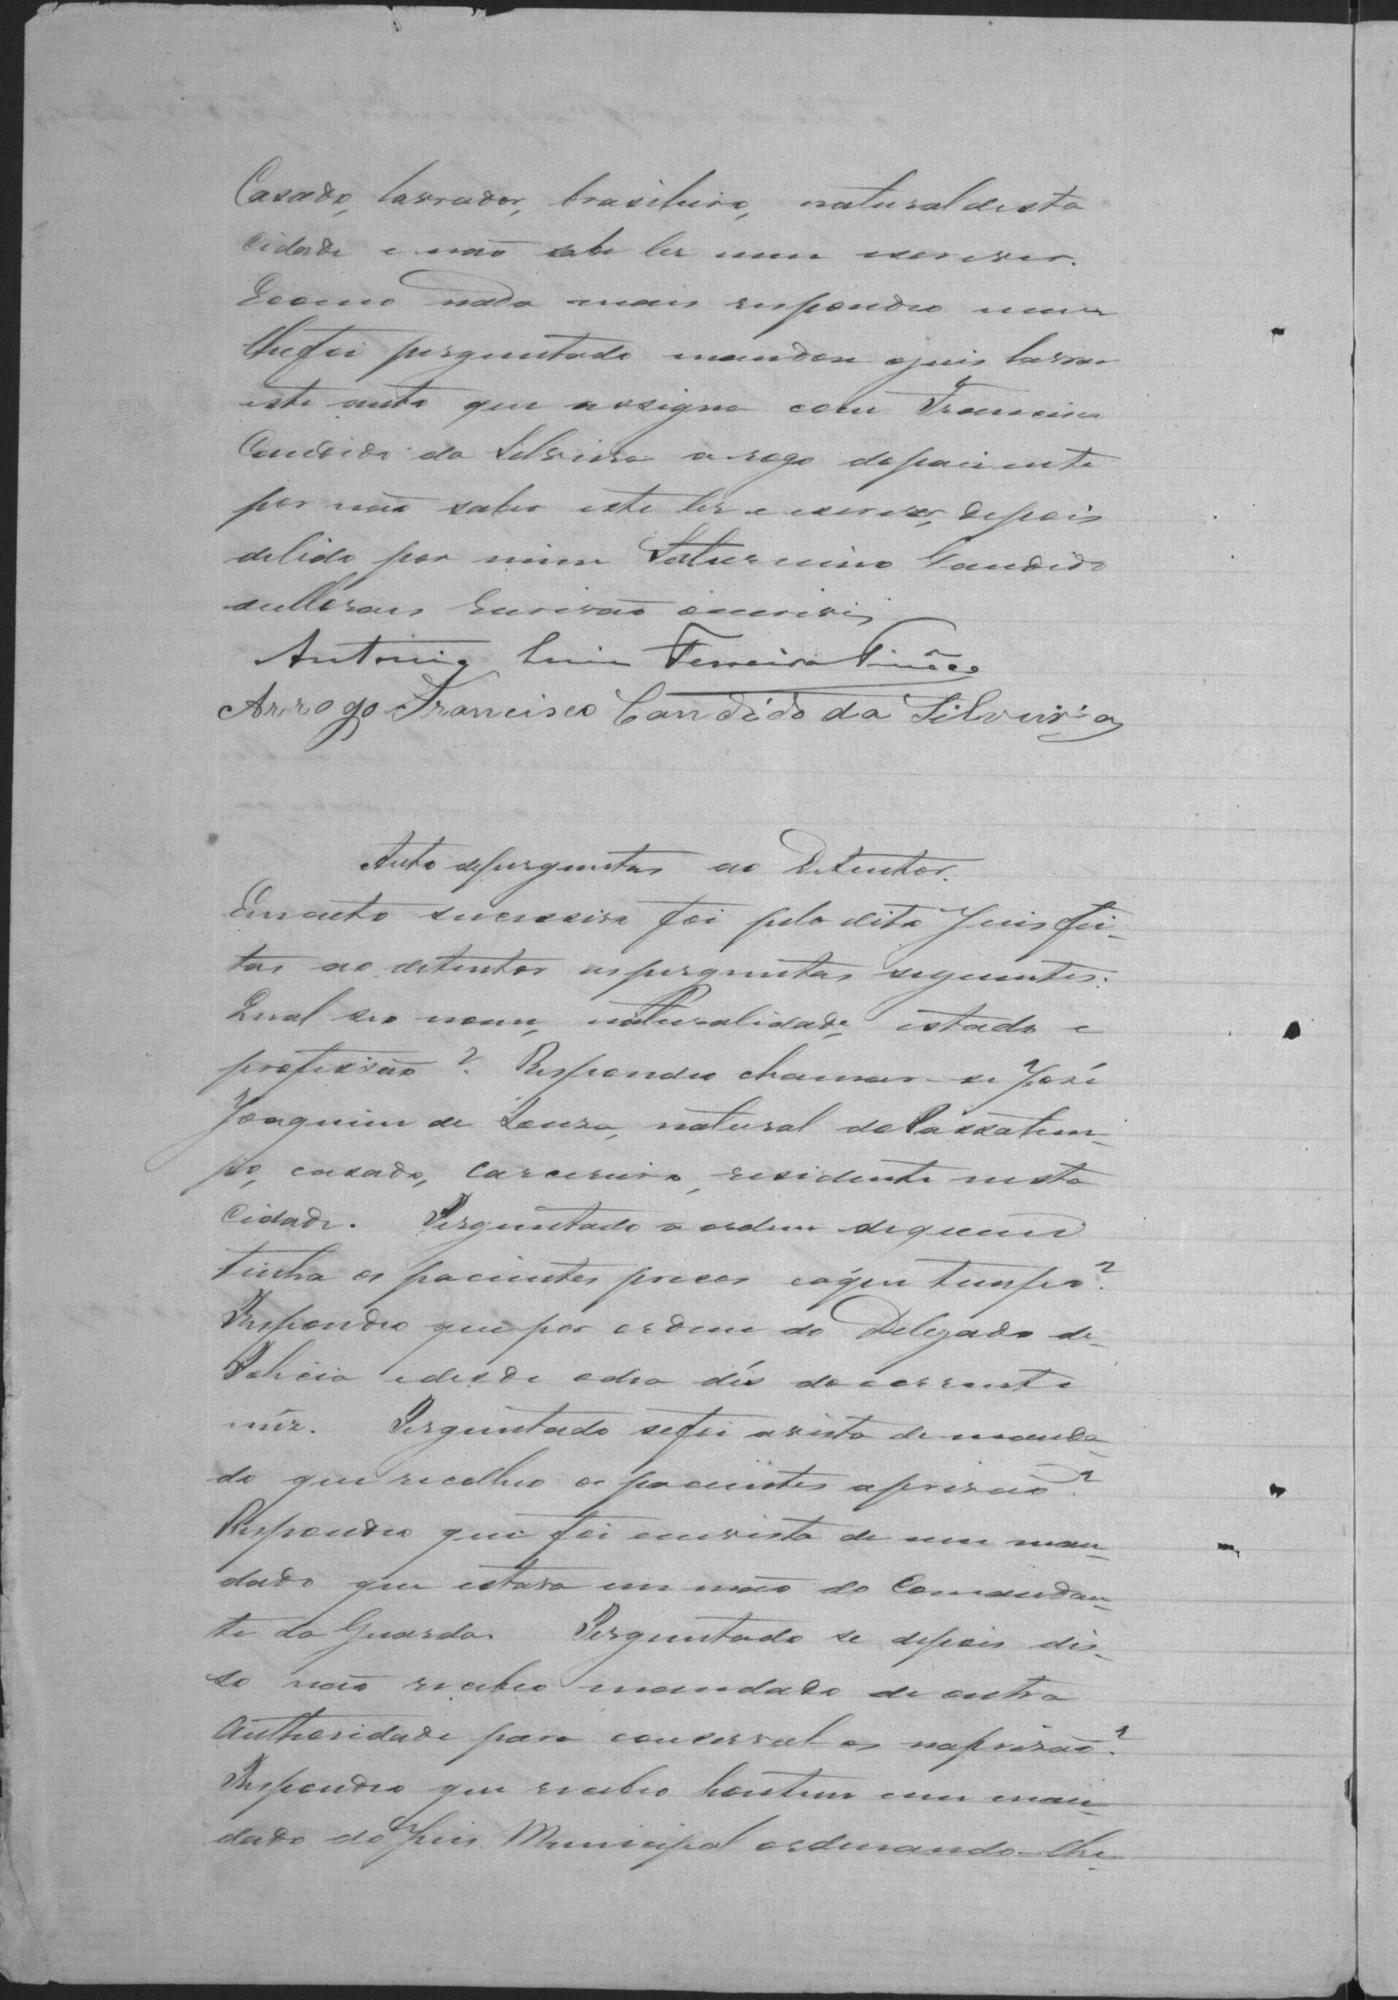 Casado, lavrador, brasileiro, natural desta
cidade e não sabe ler nem escrever.
E como nada mais respondeo nem
lhe foi perguntado mandou o juis lavrar
este auto que assigna com Francisco
Candido da Silveira a rogo do paciente
por não saber este ler e escrever, depois
de lido por mim Saturnino Candido
de Moraes Escrivão o escrivi
Antonio Luis Ferreira Tinôco
Arrogo Francisco Candido da Silveira
Auto de perguntas ao Detentor.
Em acto sucessivo foi pelo dito Juis fei-
tas ao detentor as perguntas seguintes:
Qual seo nome, naturalidade, estado e
profissão? Respondeo chamar-se José
Joaquim de Souza, natural do Passatem-
po, casado, carcereiro, residente nesta
cidade. Perguntado a ordem de quem
tinha os pacientes presos e a que tempo?
Respondeo que por ordem do Delegado de
Policia e desde o dia dés do corrente
mêz. Perguntado se foi a vista de manda-
do que recolheo os pacientes a prisão?
Respondeo que foi em vista de um man-
dado que estava em mão do Comandan-
te da Guarda. Perguntado se depois dis-
so não recebeo mandado de outra
authoridade para conserval os na prizão?
Respondeo que recebeo hontem um man-
dado do Juis Municipal ordenando-lhe